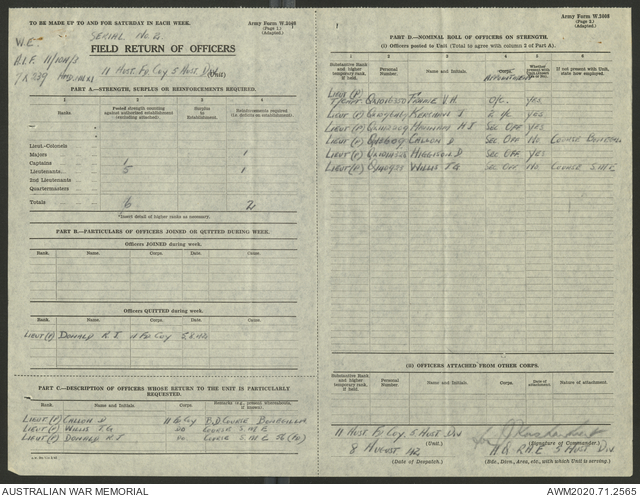 TO BE MADE UP TO AND FOR SATURDAY IN EACH WEEK.
Army Form W.3008
(Page 1.)
(Adapted.)
W.E.
SERIAL No.
FIELD RETURN OF OFFICERS
11 AUST. Fd COY 5 AUST DIV (Unit)
PART A.—STRENGTH, SURPLUS OR REINFORCEMENTS REQUIRED.
1 2 3 4
Ranks.
Posted strength counting against authorized establishment (excluding attached).
Surplus to Establishment.
Reinforcements required (i.e. deficits on establishment).
Lieut.-Colonels
Majors 1
Captains 1
Lieutenants 5 1
2nd Lieutenants
Quartermasters
Totals 6 2
*Insert detail of higher ranks as necessary.
PART B.—PARTICULARS OF OFFICERS JOINED OR QUITTED DURING WEEK.
Officers JOINED during week.
Rank. Name. Corps. Date. Cause.
Officers QUITTED during week.
Rank. Name. Corps. Date. Cause.
LIEUT (P) DONALD R J 11 Fd COY 5 8 42
PART C.—DESCRIPTION OF OFFICERS WHOSE RETURN TO THE UNIT IS PARTICULARLY REQUESTED.
Rank. Name and Initials. Corps.
LIEUT (P) CALLON D 11 Fd COY
LIEUT (P) WILLIS T G DO COURSE S M E
LIEUT (P) DONALD R J DO COURSE S M E
Army Form W.3008
(Page 2.)
(Adapted.)
PART D.—NOMINAL ROLL OF OFFICERS ON STRENGTH.
(i) Officers posted to Unit (Total to agree with column 2 of Part A).
Substantive Rank and higher temporary rank, if held.
Personal Number.
Name and Initials.
Corps.
APPOINTMENT
Whether present with Unit (Yes or No).
If not present with Unit, state how employed.
1 2 3 4 5 6
LIEUT (P)
V. H. O/C. YES
LIEUT (P) 2 i/c. YES
LIEUT (P) H J SEC OFF YES
LIEUT (P) CALLON D SEC OFF NO COURSE
LIEUT (P) D. SEC OFF YES
LIEUT (P) WILLIS T G SEC OFF NO COURSE S M E
(ii) OFFICERS ATTACHED FROM OTHER CORPS.
Substantive Rank and higher temporary rank, if held.
Personal Number
Name and Initials.
Corps.
Date of attachment.
Nature of attachment.
11 AUST. Fd COY, 5 AUST DIV
(Unit)
(Signature of Commander.)
8 AUGUST 42
(Date of Despatch.)
H Q R A E 5 AUST DIV
(Bde., Divn., Area, etc., with which Unit is serving.)
AUSTRALIAN WAR MEMORIAL
AWM2020.71.2565